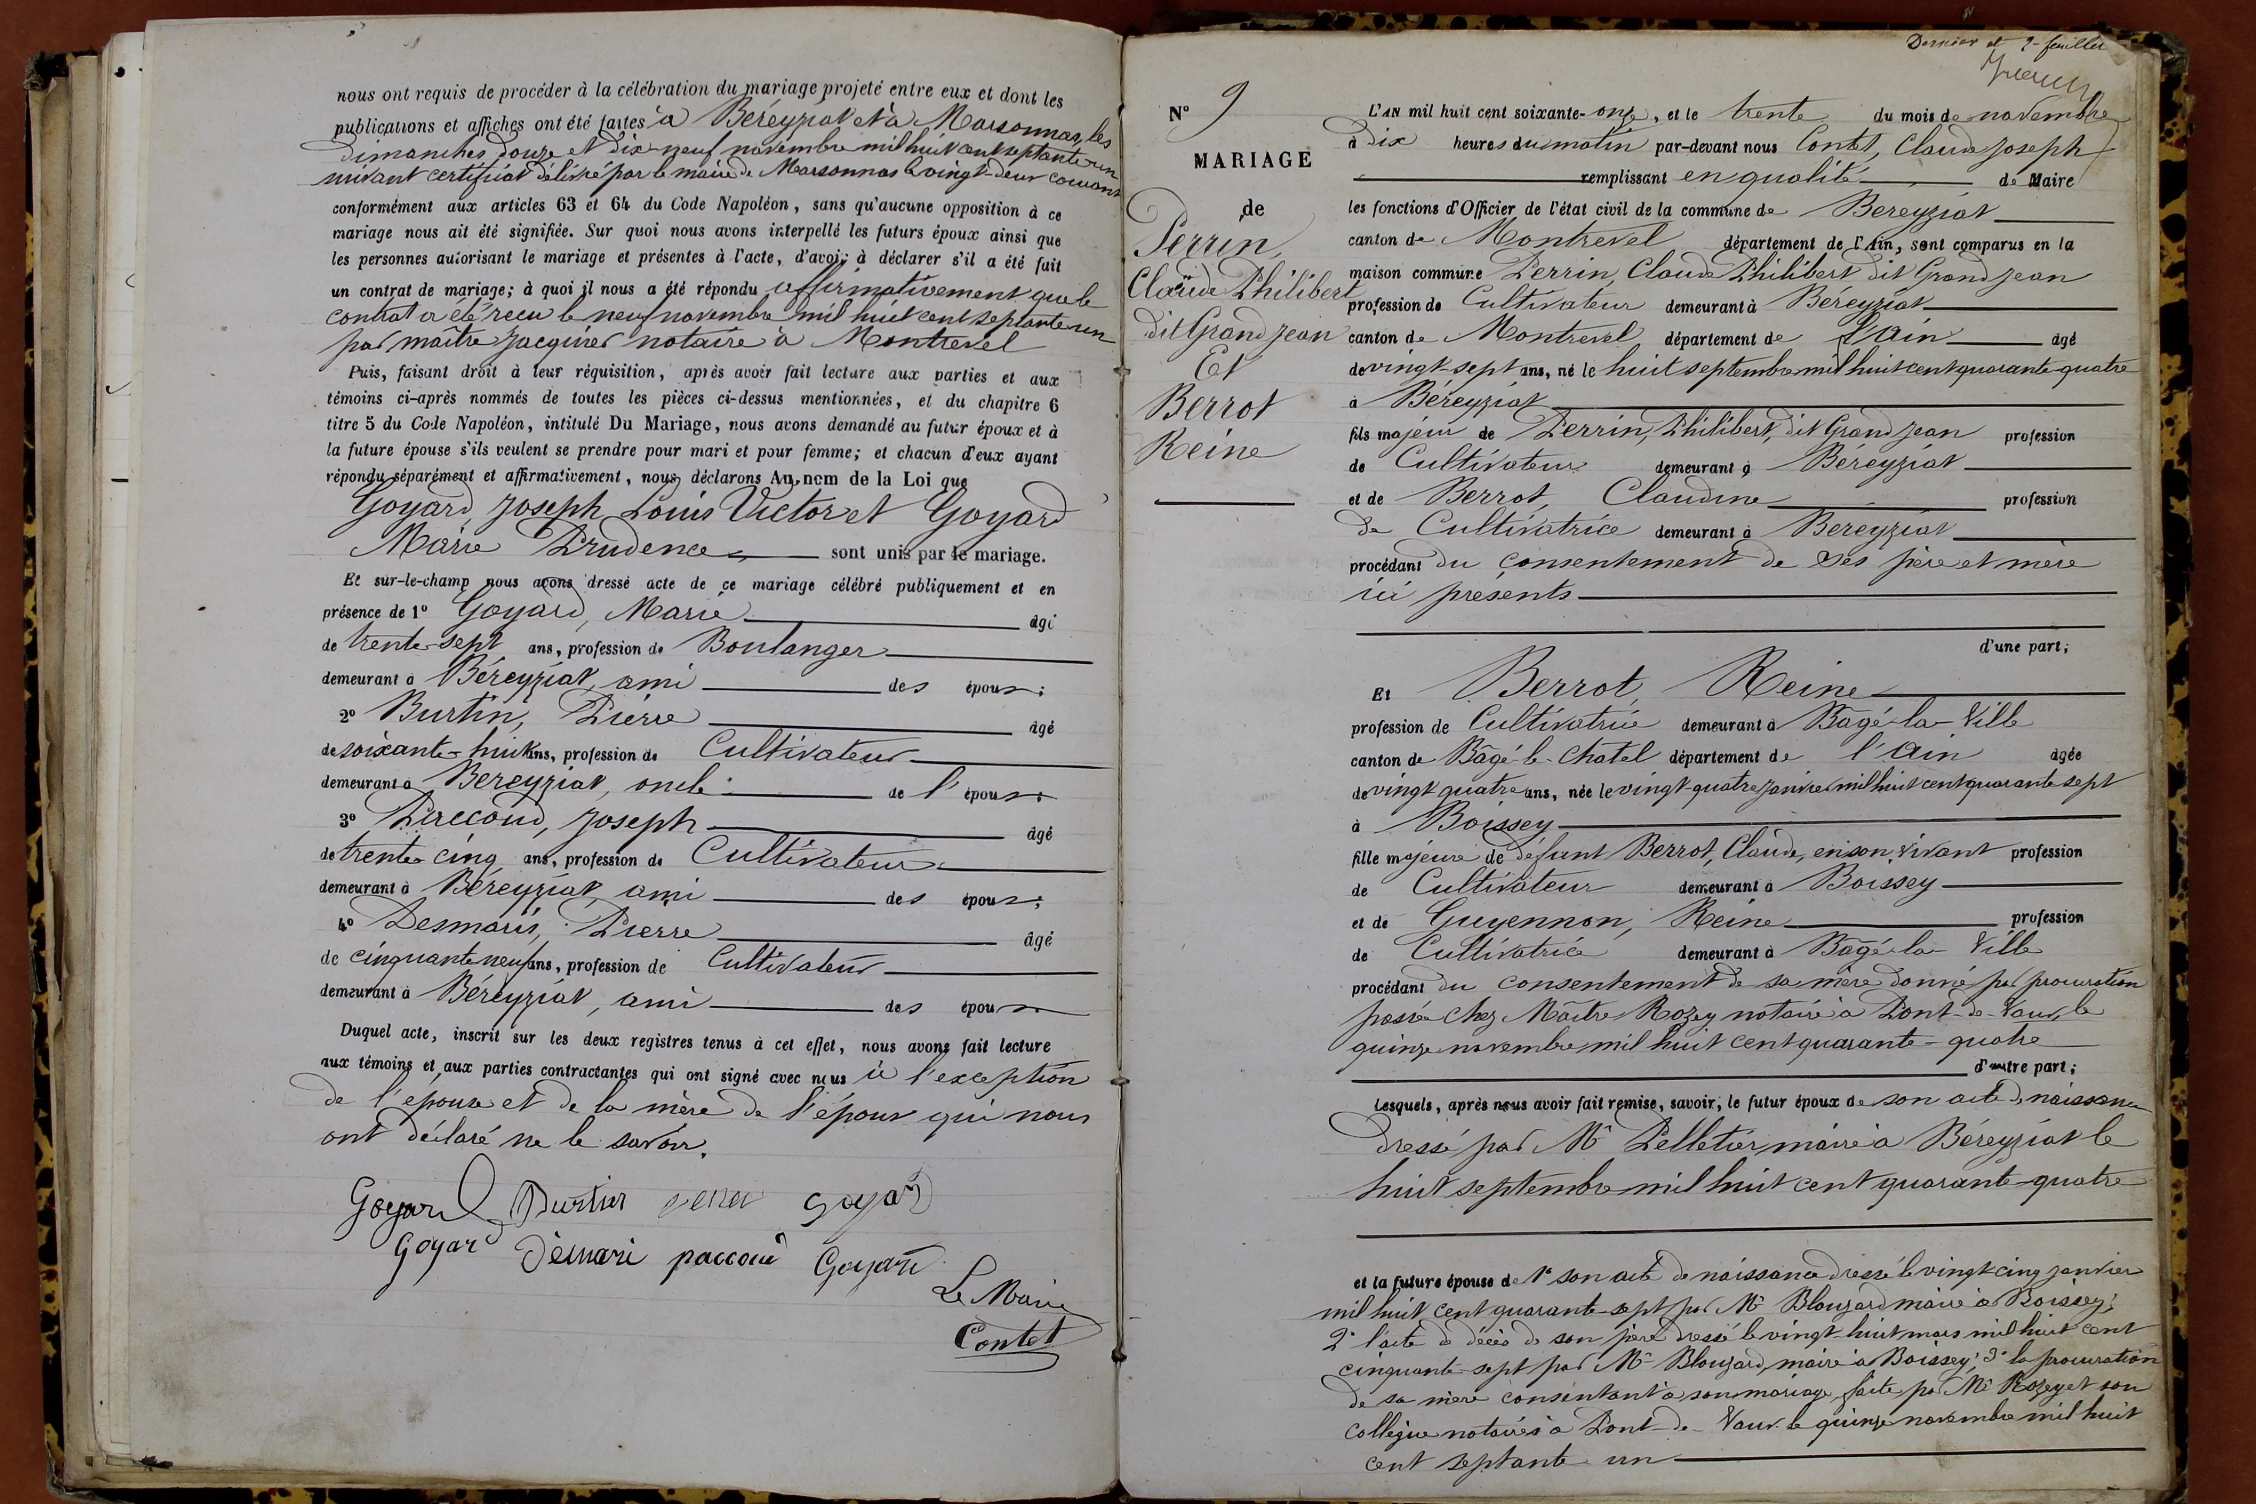 nous ont requis de procéder à la célébration du mariage projeté entre eux et dont les
publications et affiches ont été faites à Béréyziat et à Marsonnas, les
dimanches douze et dix-neuf novembre mil huit cent septante-un
suivant certificat délivré par le maire de Marsonnas le vingt-deux courant
conformément aux articles 63 et 64 du Code Napoléon, sans qu'aucune opposition à ce
mariage nous ait été signifiée. Sur quoi nous avons interpellé les futurs époux ainsi que
les personnes autorisant le mariage et présentes à l'acte, d'avoir à déclarer s'il a été fait
un contrat de mariage; à quoi il nous a été répondu affirmativement que le
contrat a été reçu le neuf novembre mil huit cent septante-un
par maître Jacquier notaire à Montrevel
Puis, faisant droit à leur réquisition, après avoir fait lecture aux parties et aux
témoins ci-après nommés de toutes les pièces ci-dessus mentionnées, et du chapitre 6
titre 5 du Code Napoléon, intitulé Du Mariage, nous avons demandé au futur époux et à
la future épouse s'ils veulent se prendre pour mari et pour femme; et chacun d'eux ayant
répondu séparément et affirmativement, nous déclarons Au nom de la Loi que
Goyard, Joseph Louis Victor et Goyard
Marie Prudence sont unis par le mariage.
Et sur-le-champ nous avons dressé acte de ce mariage célébré publiquement et en
présence de 1° Goyard, Marie âgé
de trente-sept ans, profession de Boulanger
demeurant à Béréyziat, ami des époux;
2° Burtin, Pierre âgé
de soixante-huit ans, profession de Cultivateur
demeurant à Bereyziat, oncle de l'époux;
3° Perccoud, Joseph âgé
de trente cinq ans, profession de Cultivateur
demeurant à Béreyziat, ami des époux;
4° Desmaris, Pierre âgé
de cinquante neuf ans, profession de Cultivateur
demeurant à Béréyziat, ami des époux
Duquel acte, inscrit sur les deux registres tenus à cet effet, nous avons fait lecture
aux témoins et aux parties contractantes qui ont signé avec nous à l'exception
de l'épouse et de la mère de l'époux qui nous
ont déclaré ne le savoir.
Goyard Burtin Goyard
Goyard Demari paccoud Goyard
Le Maire
Contet
Dernier et 9e feuillet
N° 9
MARIAGE
de
Perrin,
Claude Philibert
dit Grand Jean
Et
Berrot
Reine
L'AN mil huit cent soixante-onze, et le trente du mois de novembre
à dix heures du matin par-devant nous Contet, Claude Joseph
remplissant en qualité de Maire
les fonctions d'Officier de l'état civil de la commune de Bereyziat
canton de Montrevel département de l'Ain, sont comparus en la
maison commune Perrin, Claude Philibert dit Grand Jean
profession de Cultivateur demeurant à Béréyziat
canton de Montrevel département de l'Ain âgé
de vingt-sept ans, né le huit septembre mil huit cent quarante-quatre
à Béreyziat
fils majeur de Perrin, Philibert, dit Grand Jean profession
de Cultivateur demeurant à Bereyziat
et de Berrot, Claudine profession
de Cultivatrice demeurant à Bereyziat
procédant du consentement de ses père et mère
ici présents
d'une part;
Et Berrot, Reine
profession de Cultivatrice demeurant à Bâgé-la-Ville
canton de Bâgé-le-Chatel département de l'Ain âgée
de vingt quatre ans, née le vingt-quatre janvier mil huit cent quarante sept
à Boissey
fille majeure de défunt Berrot, Claude, en son vivant profession
de Cultivateur demeurant à Boissey
et de Guyennon, Reine profession
de Cultivatrice demeurant à Bâgé-la-Ville
procédant du consentement de sa mère donné par procuration
passée chez Maître Rozey notaire à Pont-de-Vaux le
quinze novembre mil huit cent quarante-quatre
d'autre part;
Lesquels, après nous avoir fait remise, savoir, le futur époux de son acte de naissance
dressé par Mr Pelletier, maire à Béreyziat le
huit septembre mil huit cent quarante-quatre
et la future épouse de 1° son acte de naissance dressé le vingt cinq janvier
mil huit cent quarante-sept par Mr Blouzard maire à Boissey;
2° l'acte de décès de son père dressé le vingt-huit mars mil huit cent
cinquante-sept par Mr Blouzard, maire à Boissey; 3° la procuration
de sa mère consentant à son mariage faite par Me Rozey et son
collègue notaires à Pont-de-Vaux le quinze novembre mil huit
cent septante-un